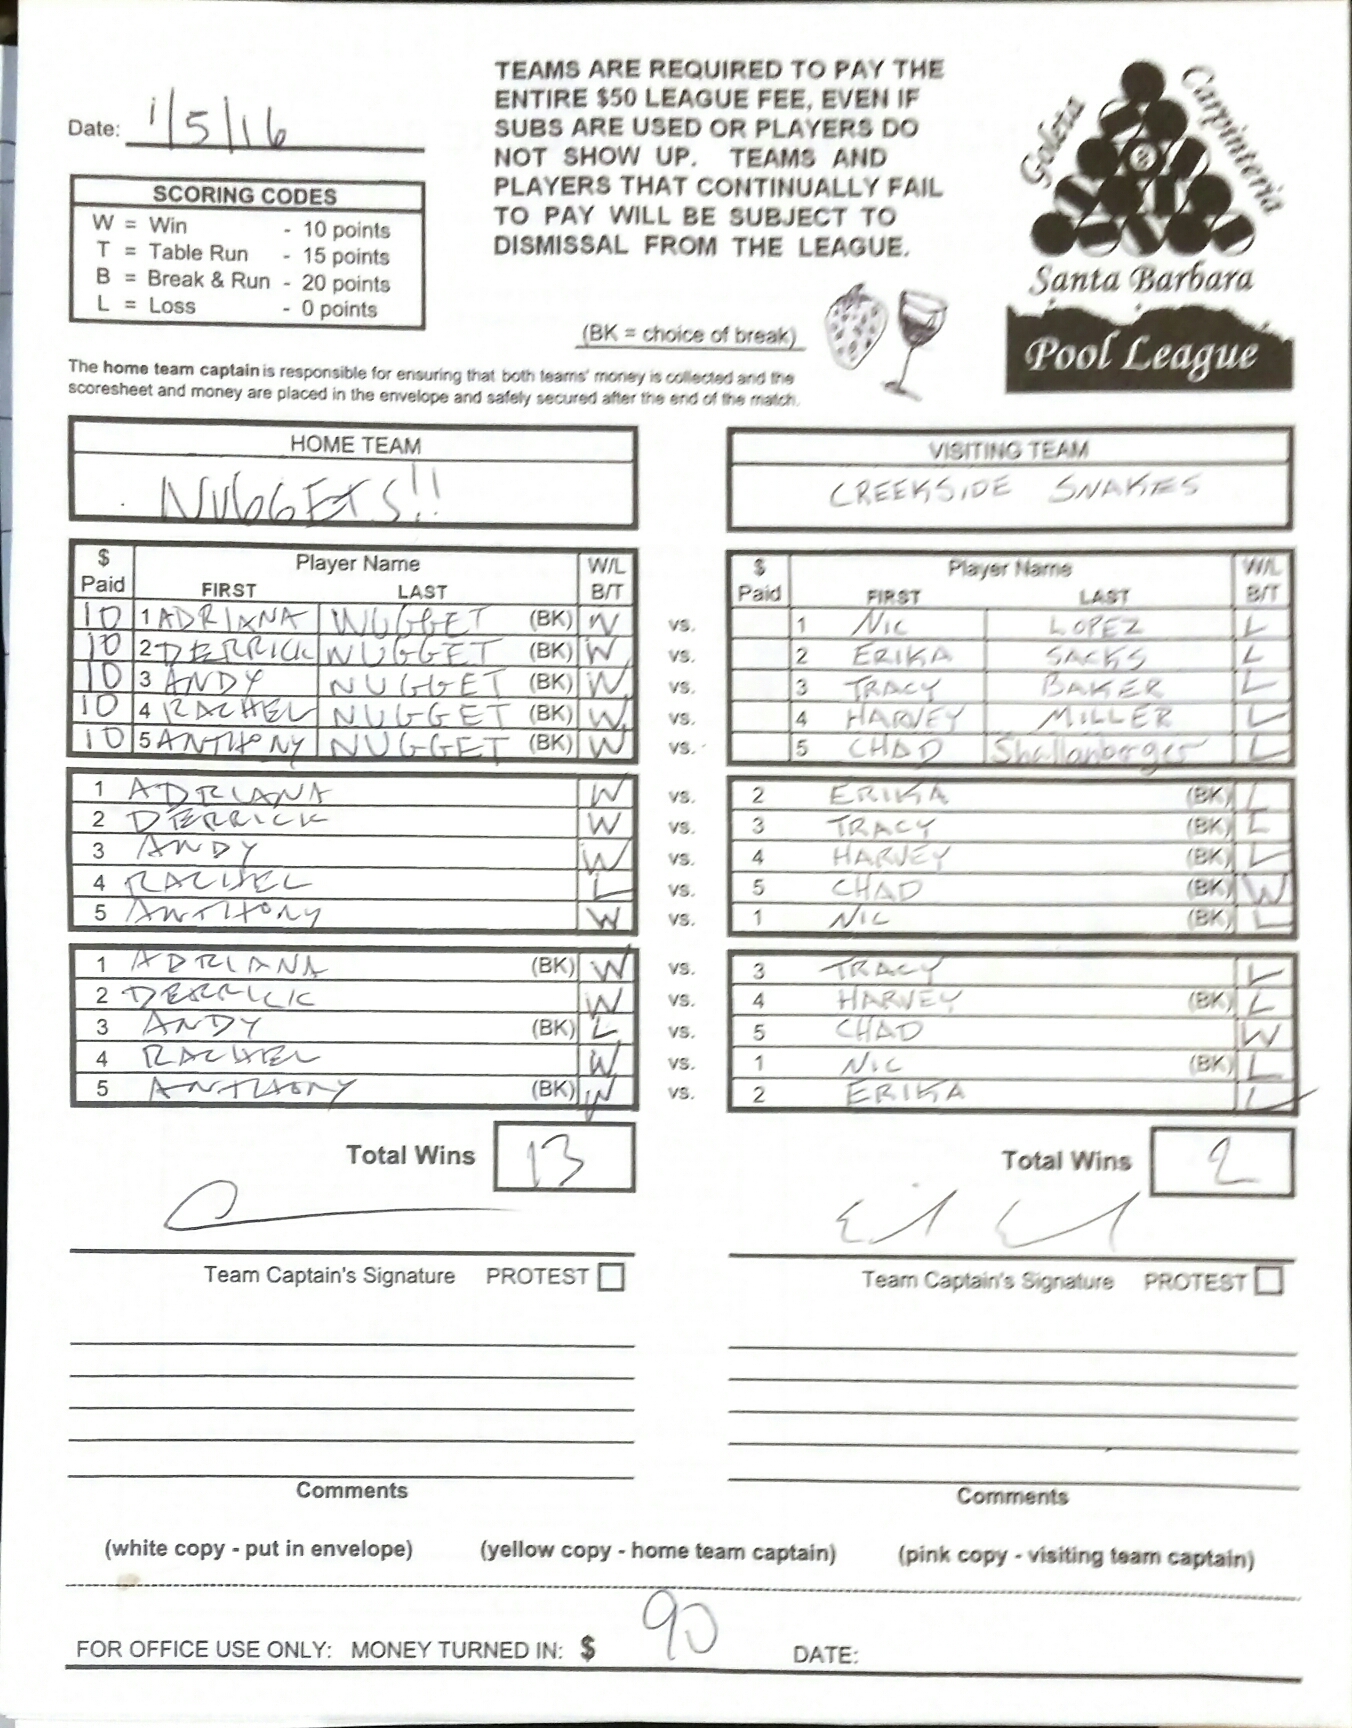 TEAMS ARE REQUIRED TO PAY THE
ENTIRE $50 LEAGUE FEE, EVEN IF
SUBS ARE USED OR PLAYERS DO
NOT SHOW UP. TEAMS AND
PLAYERS THAT CONTINUALLY FAIL
TO PAY WILL BE SUBJECT TO
DISMISSAL FROM THE LEAGUE.
Goleta Carpinteria
8
Santa Barbara
Pool League
Date: 1/5/16
SCORING CODES
W = Win - 10 points
T = Table Run - 15 points
B = Break & Run - 20 points
L = Loss - 0 points
(BK = choice of break)
The home team captain is responsible for ensuring that both teams' money is collected and the
scoresheet and money are placed in the envelope and safely secured after the end of the match.
HOME TEAM
NUGGETS!!
VISITING TEAM
CREEKSIDE SNAKES
$ Paid Player Name FIRST LAST W/L B/T
$ Paid Player Name FIRST LAST W/L B/T
10 1 ADRIANA NUGGET (BK) W vs. 1 NIC LOPEZ L
10 2 DERRICK NUGGET (BK) W vs. 2 ERIKA SACKS L
10 3 ANDY NUGGET (BK) W vs. 3 TRACY BAKER L
10 4 RACHEL NUGGET (BK) W vs. 4 HARVEY MILLER L
10 5 ANTHONY NUGGET (BK) W vs. 5 CHAD Shallanberger L
1 ADRIANA W vs. 2 ERIKA (BK) L
2 DERRICK W vs. 3 TRACY (BK) L
3 ANDY W vs. 4 HARVEY (BK) L
4 RACHEL L vs. 5 CHAD (BK) W
5 ANTHONY W vs. 1 NIC (BK) L
1 ADRIANA (BK) W vs. 3 TRACY L
2 DERRICK W vs. 4 HARVEY (BK) L
3 ANDY (BK) L vs. 5 CHAD W
4 RACHEL W vs. 1 NIC (BK) L
5 ANTHONY (BK) W vs. 2 ERIKA L
Total Wins 13
Total Wins 2
Team Captain's Signature PROTEST
Team Captain's Signature PROTEST
Comments
Comments
(white copy - put in envelope) (yellow copy - home team captain) (pink copy - visiting team captain)
FOR OFFICE USE ONLY: MONEY TURNED IN: $ 90 DATE: